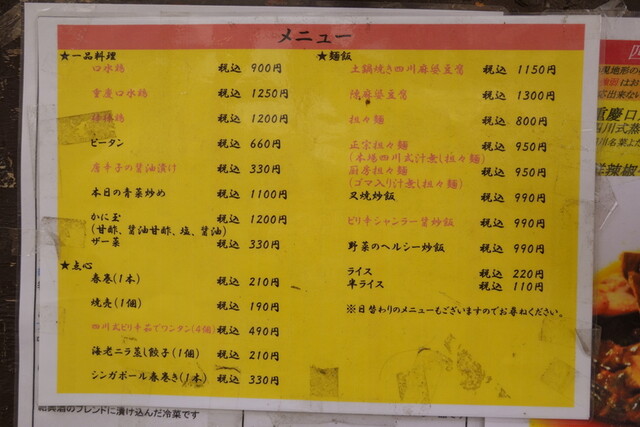 メニュー
★一品料理
口水鶏 税込 900円
重慶口水鶏 税込 1250円
棒棒鶏 税込 1200円
ピータン 税込 660円
唐辛子の醤油漬け 税込 330円
本日の青菜炒め 税込 1100円
かに玉 税込 1200円
(甘酢、醤油甘酢、塩、醤油)
ザー菜 税込 330円
★点心
春巻(1本) 税込 210円
焼売(1個) 税込 190円
四川式ピリ辛茹でワンタン(4個) 税込 490円
海老ニラ蒸し餃子(1個) 税込 210円
シンガポール春巻き(1本) 税込 330円
★麺飯
土鍋焼き四川麻婆豆腐 税込 1150円
陳麻婆豆腐 税込 1300円
担々麺 税込 800円
正宗担々麺 税込 950円
(本場四川式汁無し担々麺)
厨房担々麺 税込 950円
(ゴマ入り汁無し担々麺)
叉焼炒飯 税込 990円
ピリ辛シャンラー醤炒飯 税込 990円
野菜のヘルシー炒飯 税込 990円
ライス 税込 220円
半ライス 税込 110円
※日替わりのメニューもございますのでお尋ねください。
紹興酒のブレンドに漬け込んだ冷菜です
重慶口
四川式蒸